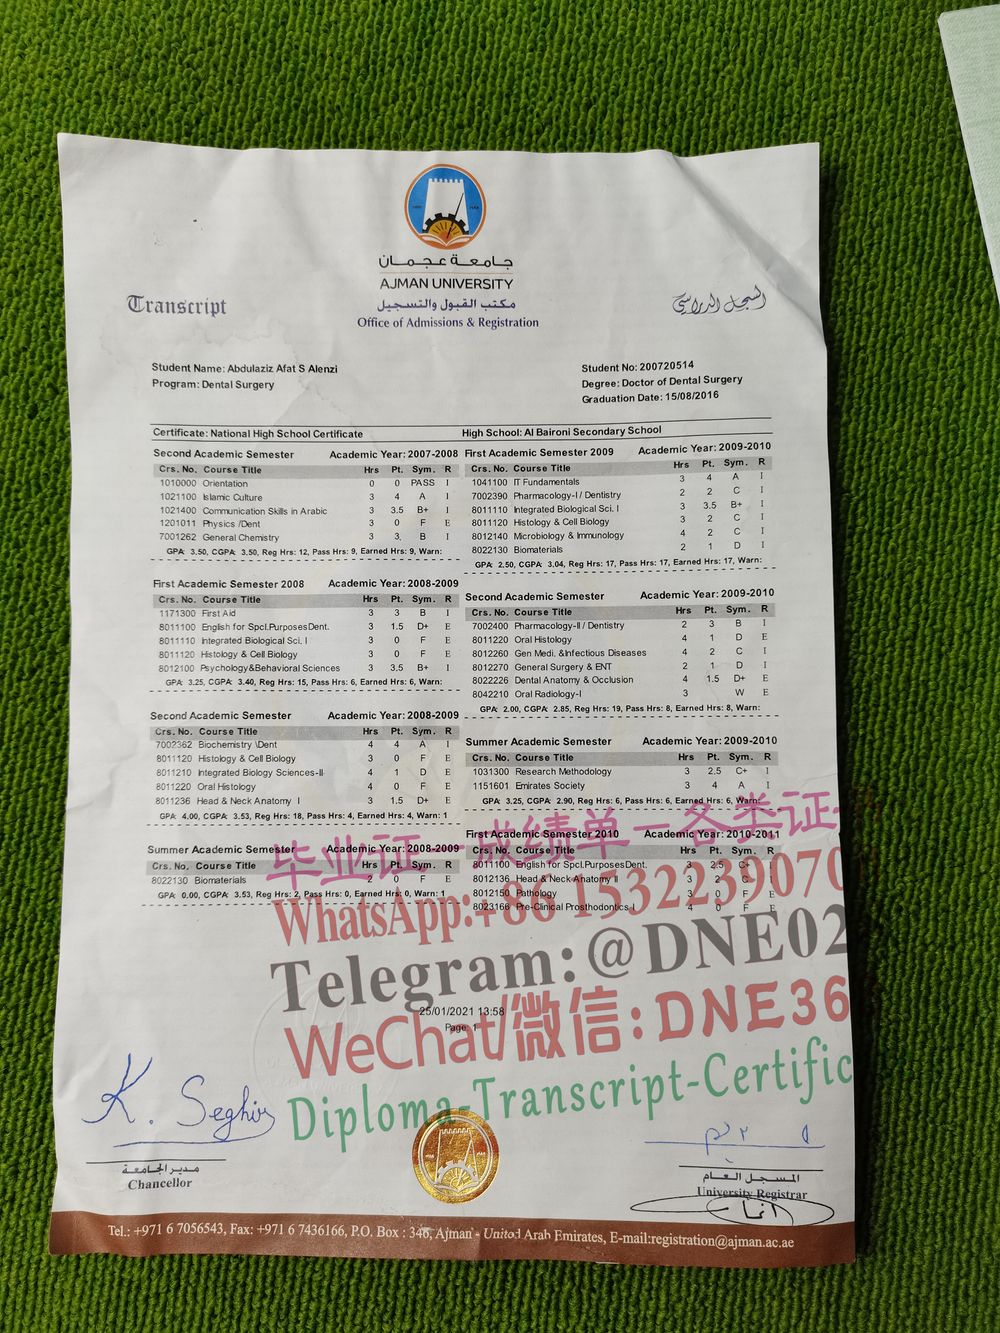 جامعة عجمان
AJMAN UNIVERSITY
مكتب القبول والتسجيل
Office of Admissions & Registration
Transcript
السجل الدراسي
Student Name: Abdulaziz Afat S Alenzi
Program: Dental Surgery
Student No: 200720514
Degree: Doctor of Dental Surgery
Graduation Date: 15/08/2016
Certificate: National High School Certificate
High School: Al Baironi Secondary School
Second Academic Semester Academic Year: 2007-2008
Crs. No. Course Title Hrs Pt. Sym. R
1010000 Orientation 0 0 PASS I
1021100 Islamic Culture 3 4 A I
1021400 Communication Skills in Arabic 3 3.5 B+ I
1201011 Physics /Dent 3 0 F E
7001262 General Chemistry 3 3, B I
GPA: 3.50, CGPA: 3.50, Reg Hrs: 12, Pass Hrs: 9, Earned Hrs: 9, Warn:
First Academic Semester 2008 Academic Year: 2008-2009
Crs. No. Course Title Hrs Pt. Sym. R
1171300 First Aid 3 3 B I
8011100 English for Spcl.PurposesDent. 3 1.5 D+ E
8011110 Integrated Biological Sci. I 3 0 F E
8011120 Histology & Cell Biology 3 0 F E
8012100 Psychology&Behavioral Sciences 3 3.5 B+ I
GPA: 3.25, CGPA: 3.40, Reg Hrs: 15, Pass Hrs: 6, Earned Hrs: 6, Warn:
Second Academic Semester Academic Year: 2008-2009
Crs. No. Course Title Hrs Pt. Sym. R
7002362 Biochemistry \Dent 4 4 A I
8011120 Histology & Cell Biology 3 0 F E
8011210 Integrated Biology Sciences-II 4 1 D E
8011220 Oral Histology 4 0 F E
8011236 Head & Neck Anatomy I 3 1.5 D+ E
GPA: 4.00, CGPA: 3.53, Reg Hrs: 18, Pass Hrs: 4, Earned Hrs: 4, Warn: 1
Summer Academic Semester Academic Year: 2008-2009
Crs. No. Course Title Hrs Pt. Sym. R
8022130 Biomaterials 2 0 F E
GPA: 0.00, CGPA: 3.53, Reg Hrs: 2, Pass Hrs: 0, Earned Hrs: 0, Warn: 1
First Academic Semester 2009 Academic Year: 2009-2010
Crs. No. Course Title Hrs Pt. Sym. R
1041100 IT Fundamentals 3 4 A I
7002390 Pharmacology-I / Dentistry 2 2 C I
8011110 Integrated Biological Sci. I 3 3.5 B+ I
8011120 Histology & Cell Biology 3 2 C I
8012140 Microbiology & Immunology 4 2 C I
8022130 Biomaterials 2 1 D I
GPA: 2.50, CGPA: 3.04, Reg Hrs: 17, Pass Hrs: 17, Earned Hrs: 17, Warn:
Second Academic Semester Academic Year: 2009-2010
Crs. No. Course Title Hrs Pt. Sym. R
7002400 Pharmacology-II / Dentistry 2 3 B I
8011220 Oral Histology 4 1 D E
8012260 Gen Medi, &Infectious Diseases 4 2 C I
8012270 General Surgery & ENT 2 1 D I
8022226 Dental Anatomy & Occlusion 4 1.5 D+ E
8042210 Oral Radiology-I 3 W E
GPA: 2.00, CGPA: 2.85, Reg Hrs: 19, Pass Hrs: 8, Earned Hrs: 8, Warn:
Summer Academic Semester Academic Year: 2009-2010
Crs. No. Course Title Hrs Pt. Sym. R
1031300 Research Methodology 3 2.5 C+ I
1151601 Emirates Society 3 4 A I
GPA: 3.25, CGPA: 2.90, Reg Hrs: 6, Pass Hrs: 6, Earned Hrs: 6, Warn:
First Academic Semester 2010 Academic Year: 2010-2011
Crs. No. Course Title Hrs Pt. Sym. R
8011100 English for Spcl.PurposesDent. 3 2.5 C+ I
8012136 Head & Neck Anatomy II 3 2 C I
8012150 Pathology 3 0 F E
8023166 Pre-Clinical Prosthodontics I 4 0 F E
毕业证—成绩单—各类证
WhatsApp:+86 1532239070
Telegram:@DNE02
WeChat/微信:DNE36
Diploma-Transcript-Certific
25/01/2021 13:58
Page: 1
K. Seghir
مدير الجامعة
Chancellor
المسجل العام
University Registrar
Tel.: +971 6 7056543, Fax: +971 6 7436166, P.O. Box : 346, Ajman - United Arab Emirates, E-mail:registration@ajman.ac.ae